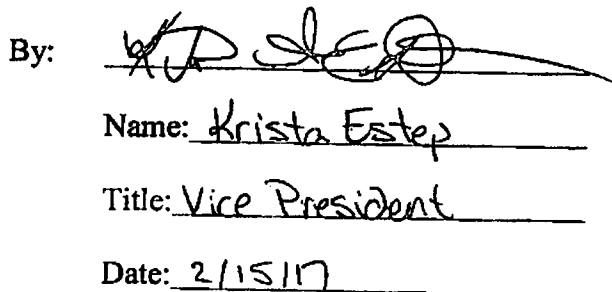 By:
Name: Krista Estep
Title: Vice President
Date: 2/15/17